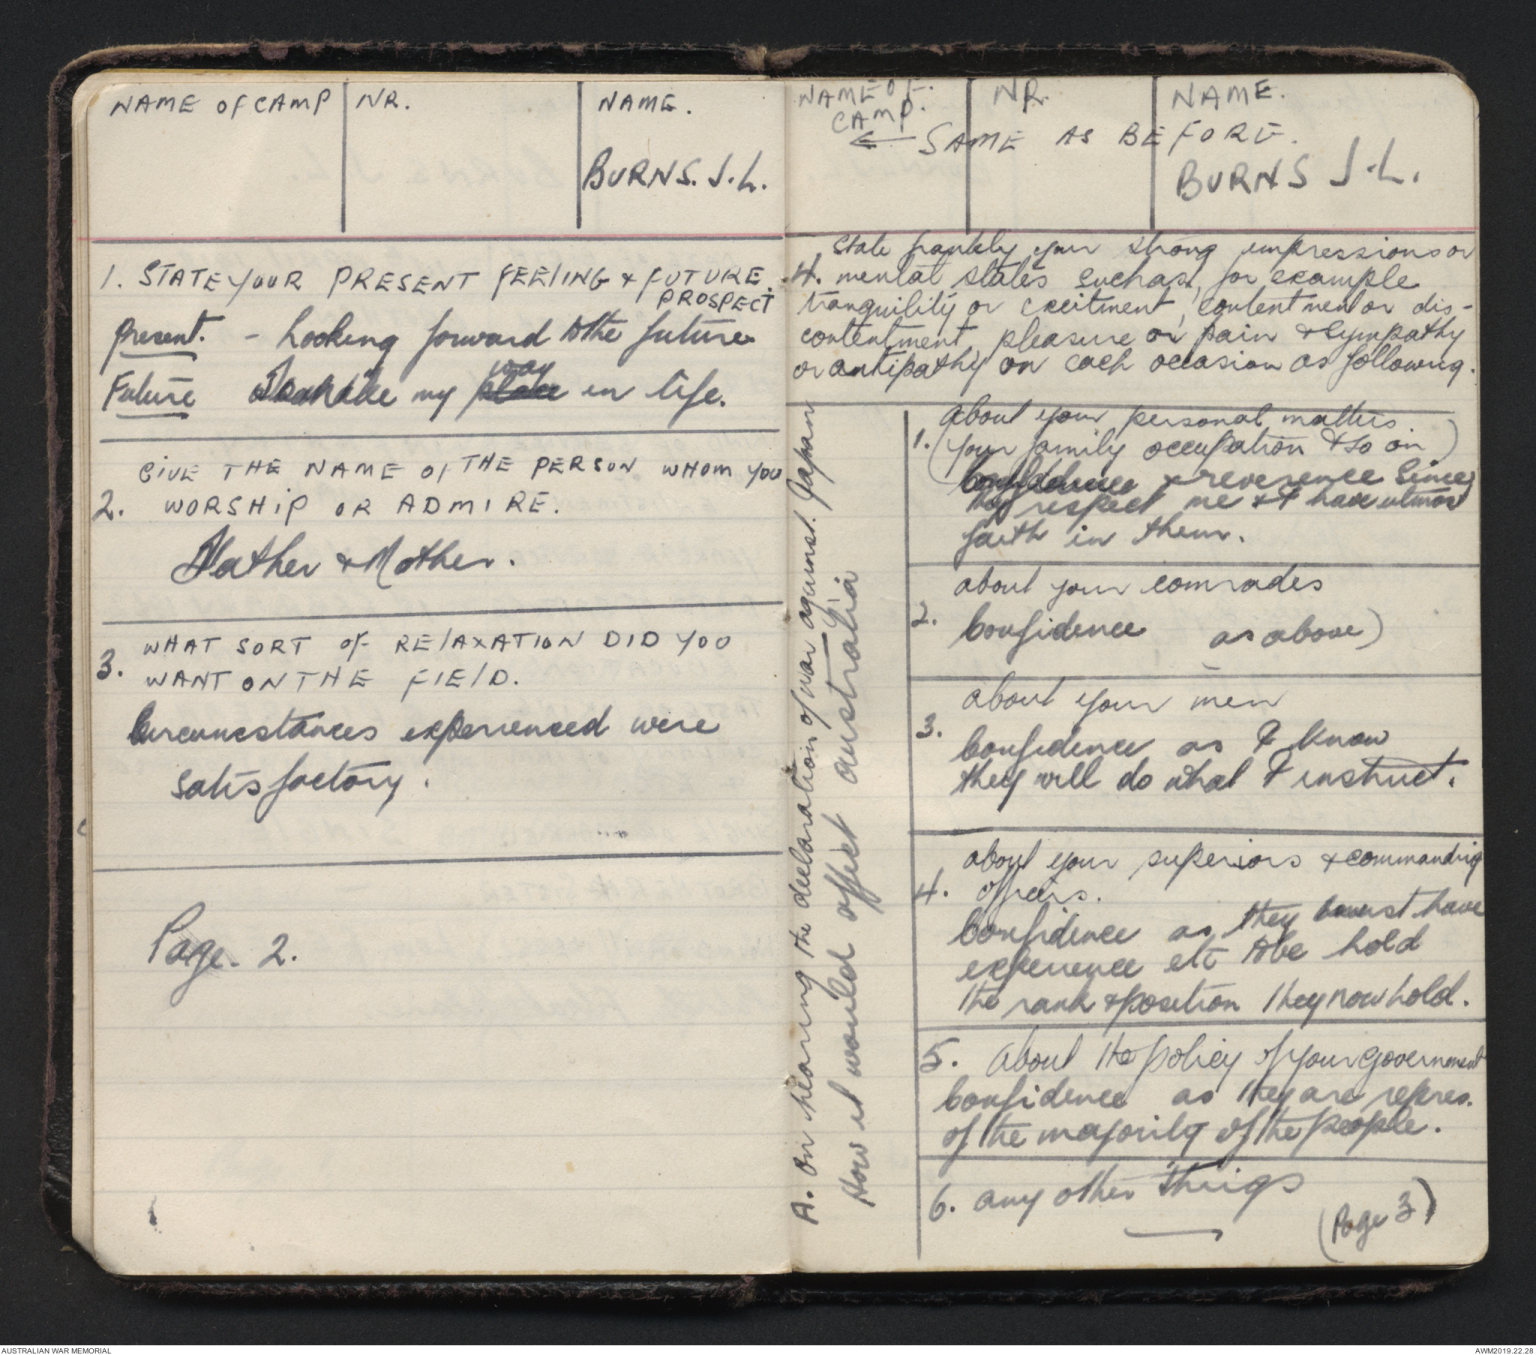 NAME OF CAMP
NR.
NAME.
BURNS. J.L.
1. STATE YOUR PRESENT FEELING & FUTURE.
PROSPECT
Present. - Looking forward to the future
Future To make my place way in life.
GIVE THE NAME OF THE PERSON WHOM YOU
2. WORSHIP OR ADMIRE.
Father & Mother.
WHAT SORT OF RELAXATION DID YOU
3. WANT ON THE FIELD.
Circumstances experienced were
satisfactory.
Page. 2.
NAME OF.
CAMP.
NR.
NAME.
← SAME AS BEFORE.
BURNS J.L.
State frankly your strong impressions or
4. mental states such as, for example
tranquility or excitment, contentmen or dis-
contentment, pleasure or pain & sympathy
or antipathy on each occasion as following.
A. On hearing the declaration of war against. Japan
How it would affect australia
About your personal matters
1. (your family occupation & so on)
Confidence & reverence since
they respect me & I have utmost
faith in them.
about your comrades
2. Confidence as above)
about your men
3. Confidence as I know
they will do what I instruct.
about your superiors & commanding
4. officers.
Confidence as they must have
experience etc to be hold
the rank & position they now hold.
5. About the policy of your government
Confidence as they are repres.
of the majority of the people.
6. any other things
(Page 3)
AUSTRALIAN WAR MEMORIAL
AWM2019.22.28